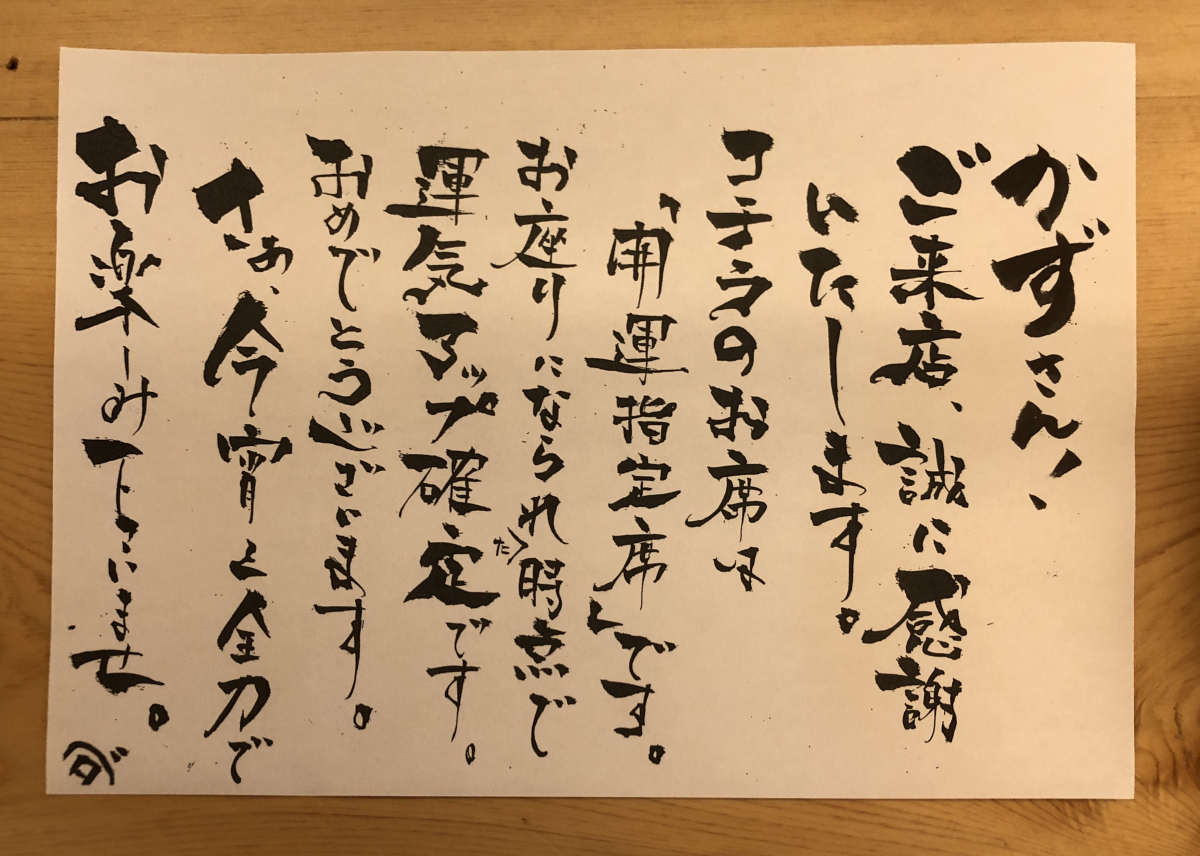 かずさん、
ご来店、誠に感謝
いたします。
コチラのお席は
「開運指定席」です。
お座りになられた時点で
運気アップ確定です。
おめでとうございます。
さぁ、今宵も全力で
お楽しみ下さいませ。